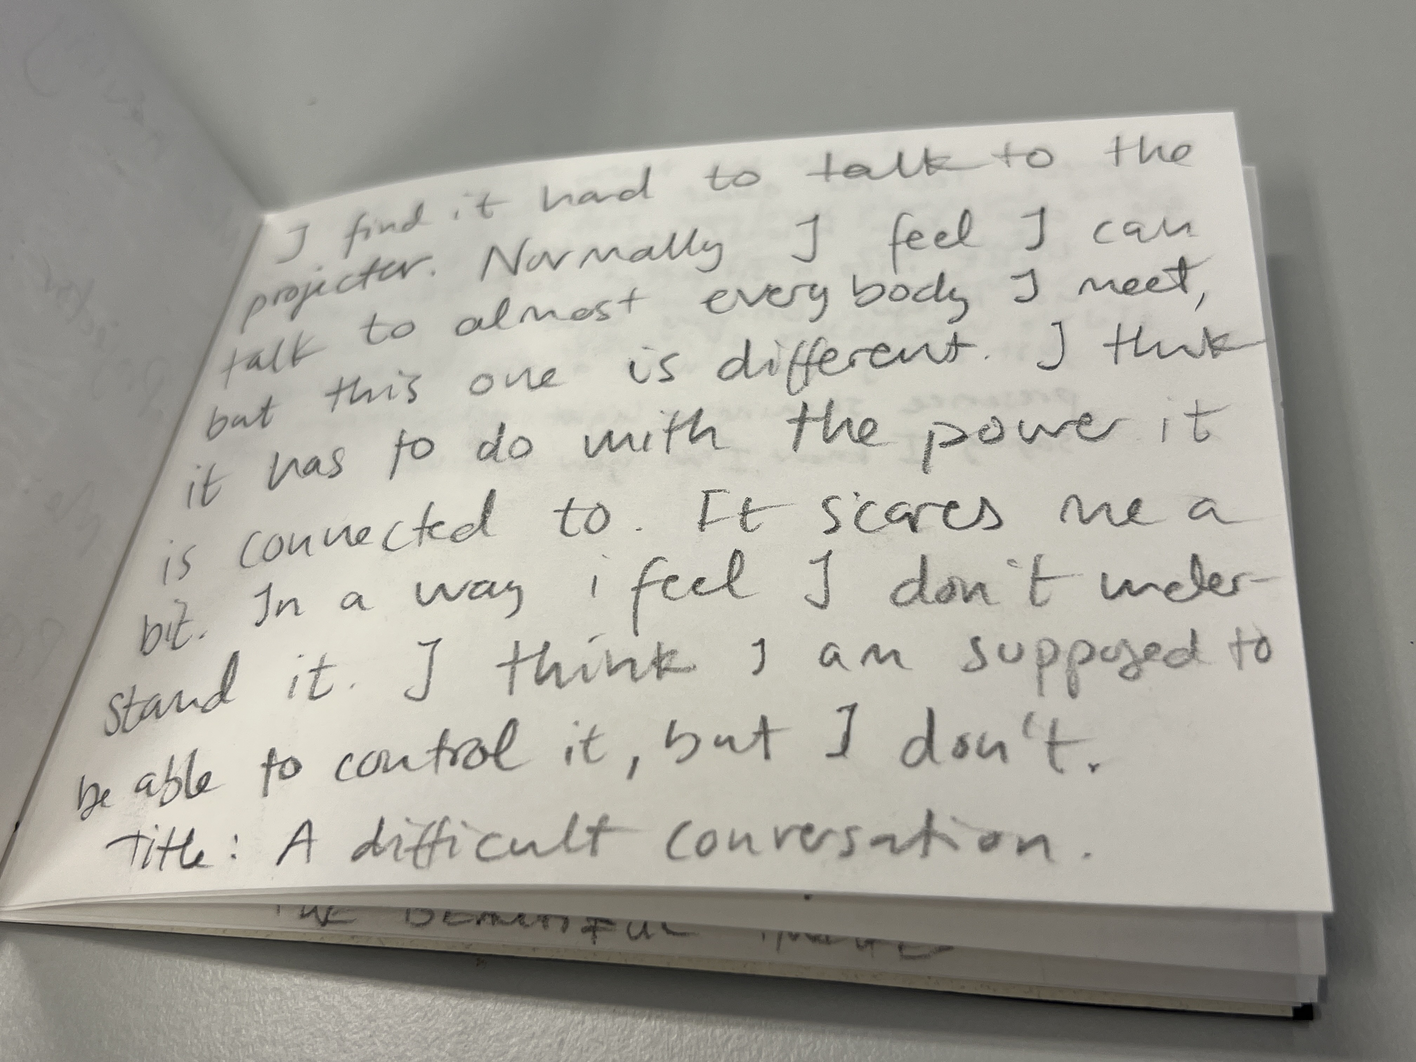 I find it hard to talk to the
projector. Normally I feel I can
talk to almost everybody I meet,
but this one is different. I think
it has to do with the power it
is connected to. It scares me a
bit. In a way i feel I don't under-
stand it. I think I am supposed to
be able to control it, but I don't.
Title: A difficult conversation.
THE BEAUTIFUL